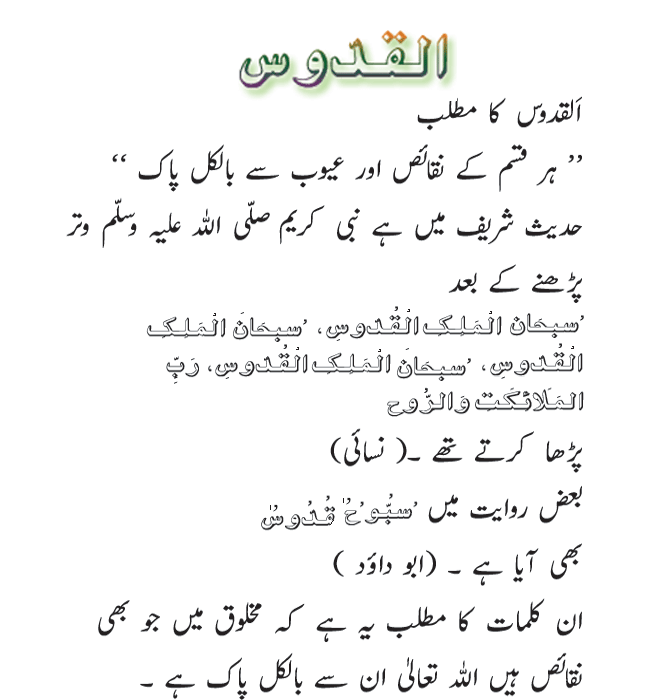 القدوس
اَلقدوس کا مطلب
” ہر قسم کے نقائص اور عیوب سے بالکل پاک “
حدیث شریف میں ہے نبی کریم صلّی اللہ علیہ وسلّم وتر
پڑھنے کے بعد
ُسبحَان الْمَلِکِ الْقُدوسِ، ُسبحَانَ الْمَلِکِ
الْقُدوسِ، ُسبحَانَ الْمَلِکِ الْقُدوسِ، رَبِّ
المَلَائکَتِ وَالرُّوح
پڑھا کرتے تھے ۔( نسائی)
بعض روایت میں ُسبُّوحُٗ قُدُوسُٗ
بھی آیا ہے ۔ (ابو داؤد )
ان کلمات کا مطلب یہ ہے کہ مخلوق میں جو بھی
نقائص ہیں اللہ تعالیٰ ان سے بالکل پاک ہے ۔